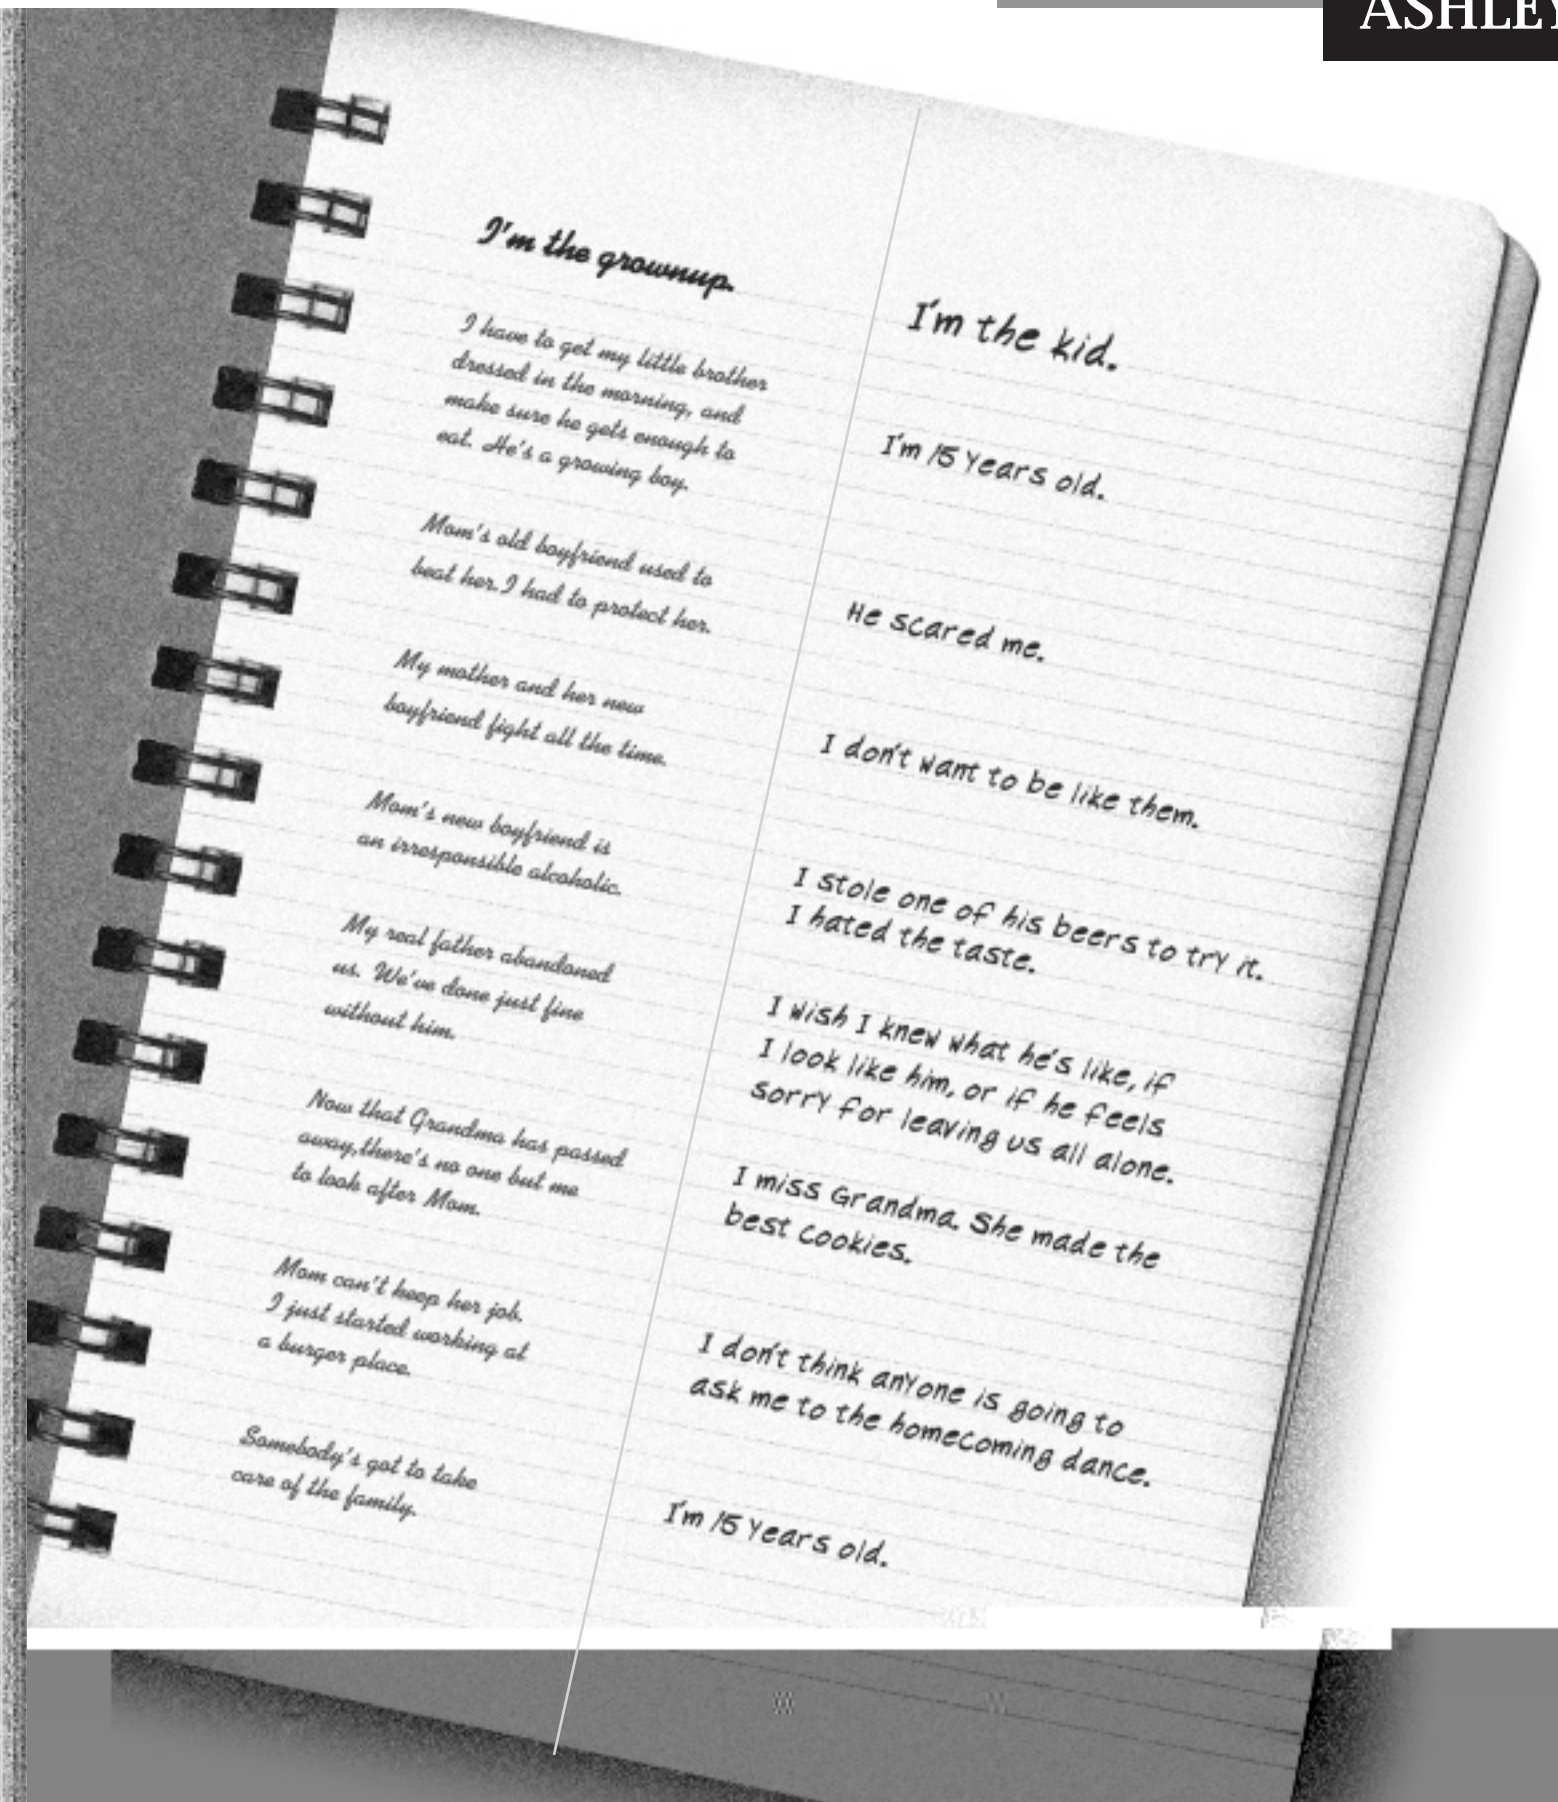 ASHLEY
I'm the grownup.
I have to get my little brother
dressed in the morning, and
make sure he gets enough to
eat. He's a growing boy.
Mom's old boyfriend used to
beat her. I had to protect her.
My mother and her new
boyfriend fight all the time.
Mom's new boyfriend is
an irresponsible alcoholic.
My real father abandoned
us. We've done just fine
without him.
Now that Grandma has passed
away, there's no one but me
to look after Mom.
Mom can't keep her job.
I just started working at
a burger place.
Somebody's got to take
care of the family.
I'm the kid.
I'm 15 Years old.
He scared me.
I don't want to be like them.
I stole one of his beers to try it.
I hated the taste.
I wish I knew what he's like, if
I look like him, or if he feels
sorry for leaving us all alone.
I miss Grandma. She made the
best cookies.
I don't think anyone is going to
ask me to the homecoming dance.
I'm 15 Years old.